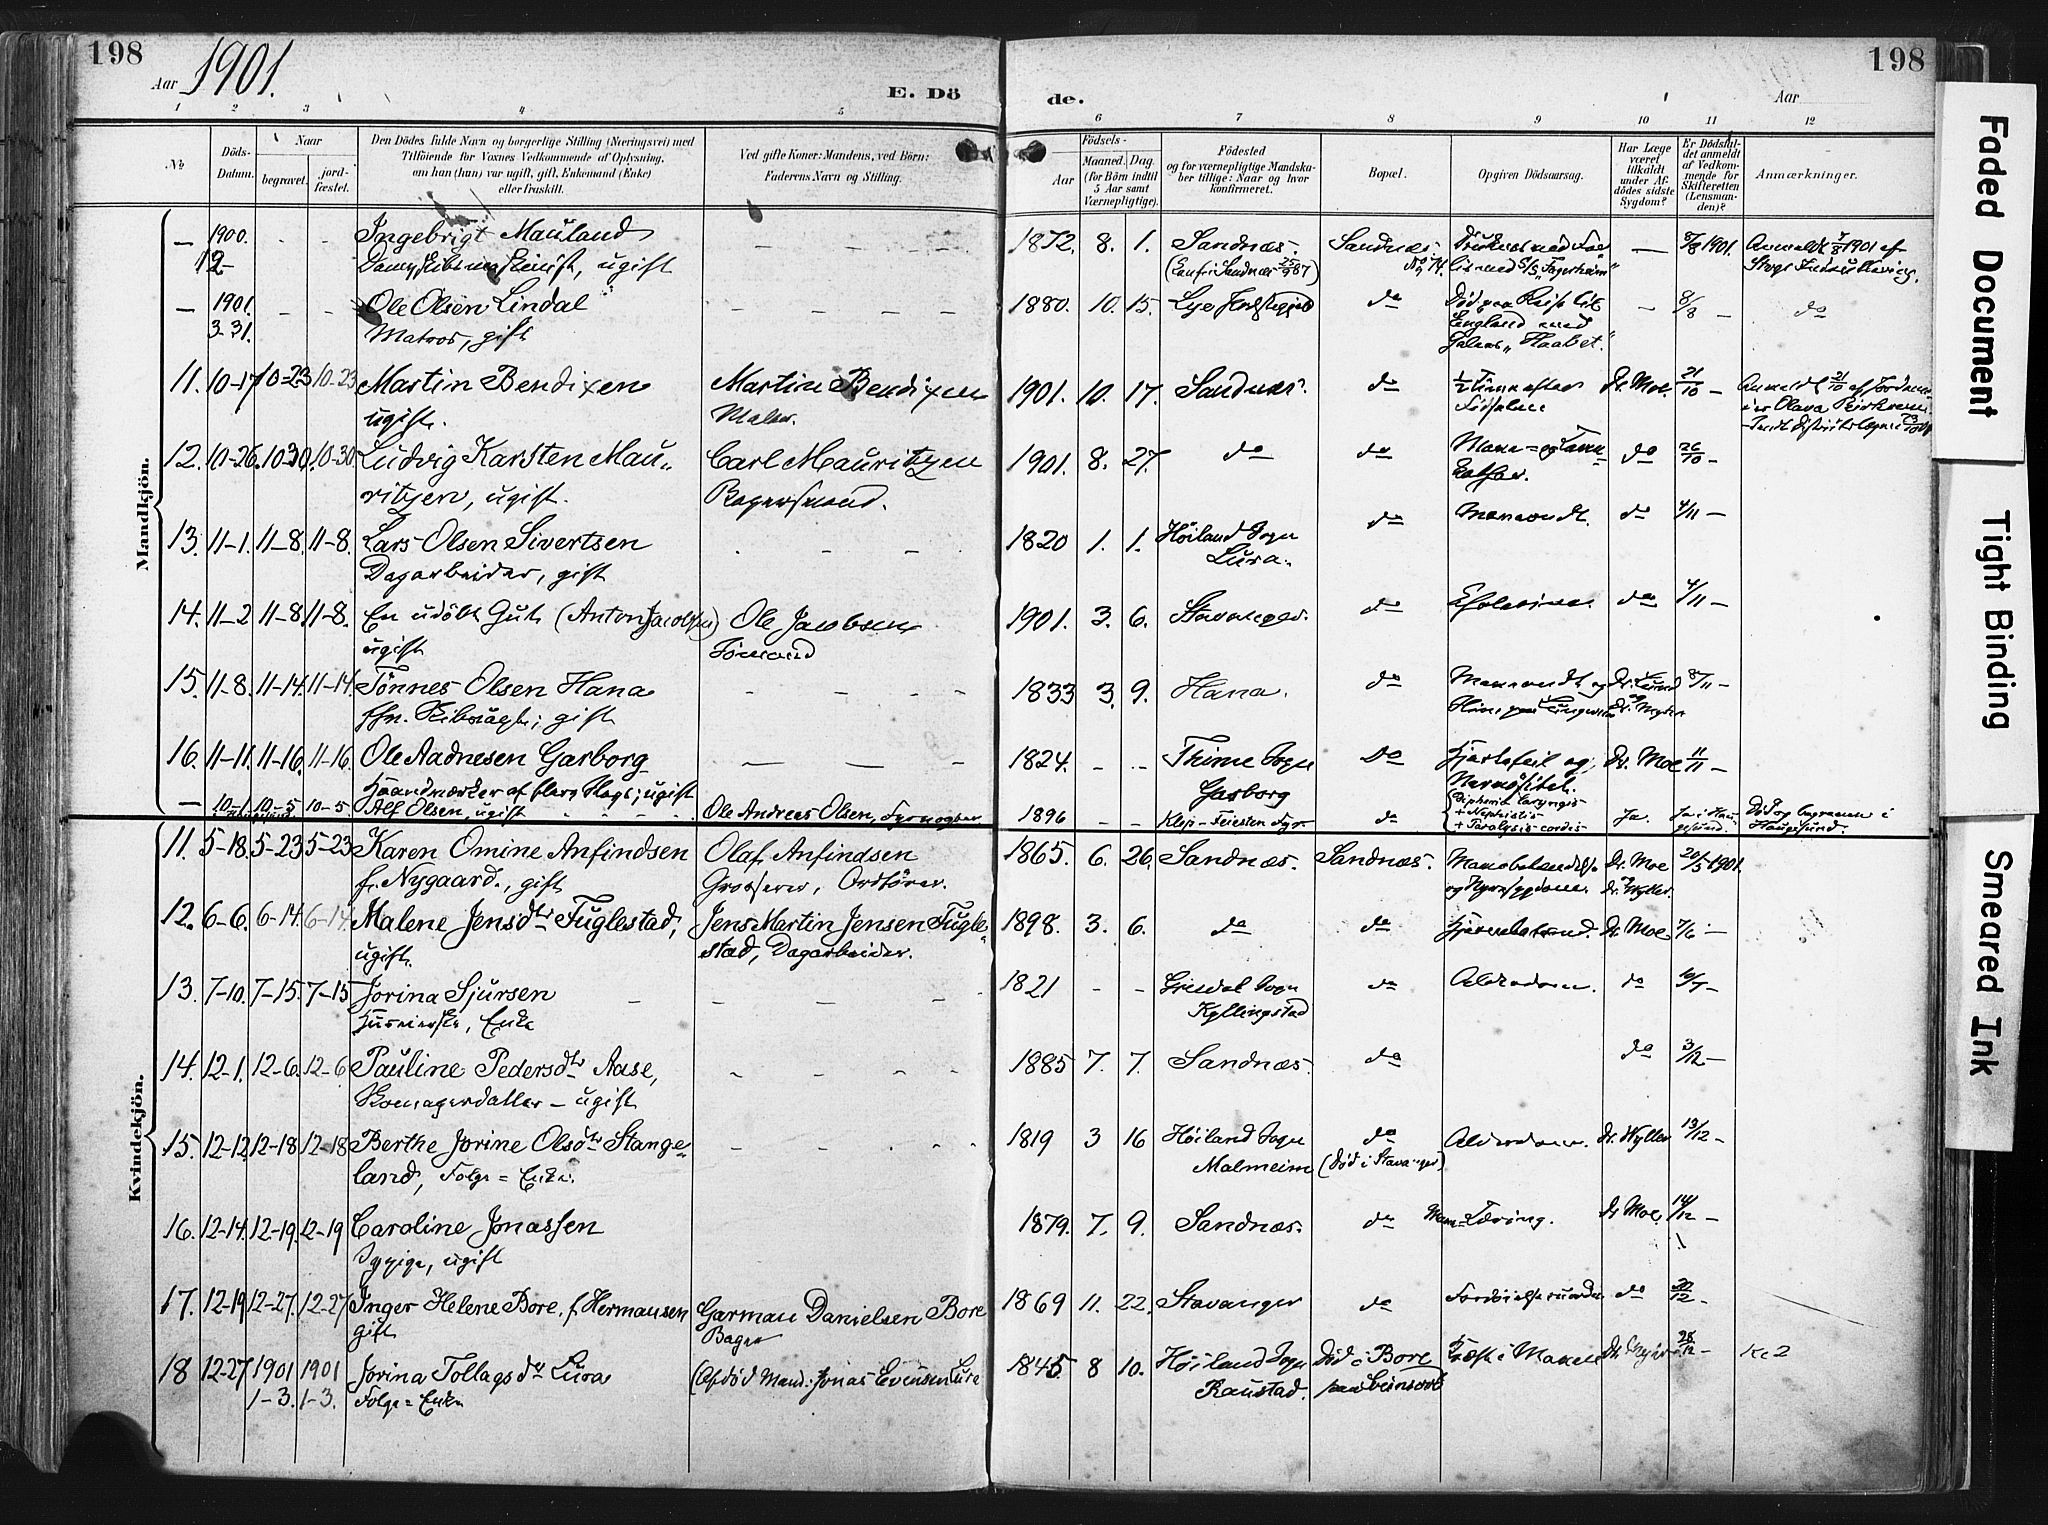 198
Aar 1901.
E. Dö
1 2 3 4 5
№
Döds-Datum.
Naar
begravet.
jord-fæstet.
Den Dödes fulde Navn og borgerlige Stilling (Næringsvei) med
Tilföiende for Voxnes Vedkommende af Oplysning,
om han (hun) var ugift, gift, Enkemand (Enke)
eller fraskilt.
Ved gifte Koner: Mandens, ved Börn:
Faderens Navn og Stilling.
Mandkjön.
— 1900. - - Ingebrigt Mauland
12- ugift
— 1901. - - Ole Olsen Lindal
3-31. Matros, gift
11. 10-17 10-23 10-23 Martin Bendixen Martin Bendixen
ugift. Maler.
12. 10-26. 10-30. 10-30. Ludvig Karsten Mau- Carl Mauritzen
ritzen, ugift.
13. 11-1. 11-8. 11-8. Lars Olsen Sivertsen
Dagarbeider, gift
14. 11-2 11-8 11-8. En udöbt Gut (Anton Jacobsen) Ole Jacobsen
ugift Sömand
15. 11-8. 11-14. 11-14. Tönnes Olsen Hana
gift
16. 11-11. 11-16. 11-16 Ole Aadnesen Garborg
Haandværker af flere Slags; ugift
— 10-1. 10-5 10-5 Alf Olsen, ugift Ole Andreas Olsen, Fyrvogter
Kvindekjön.
11. 5-18. 5-23 5-23 Karen Omine Anfindsen Olaf Anfindsen
f. Nygaard., gift Grosserer, Ordförer.
12. 6-6. 6-14. 6-14 Malene Jensdtr Fuglestad, Jens Martin Jensen Fugle-
ugift. stad, Dagarbeider.
13. 7-10. 7-15. 7-15 Jorina Sjursen
Enke
14. 12-1. 12-6. 12-6. Pauline Pedersdtr Aase,
ugift
15. 12-12. 12-18. 12-18 Berthe Jorine Olsdtr Stange-
land, Folge = Enke.
16. 12-14. 12-19. 12-19 Caroline Jonassen
Sypige, ugift
17. 12-19 12-27. 12-27 Inger Helene Bore, f. Hermansen Garman Danielsen Bore
gift Bager
18 12-27 1901 1901 Jorina Tollagsdtr Lura (Afdöd Mand: Jonas Evensen Lura
1-3. 1-3. Folge = Enke
de.
Aar
198
6 7 8 9 10 11 12
Födsels-
Aar
Maaned. Dag.
(for Börn indtil
5 Aar samt
Værnepligtige).
Födested
og for værnepligtige Mandska-
ber tillige: Naar og hvor
konfirmeret.
Bopæl.
Opgiven Dödsaarsag.
Har Læge
været
tilkaldt
under Af-
dödes sidste
Sygdom?
Er Dödsfal-
det anmeldt
af Vedkom-
mende for
Skifteretten
(Lensman-
den)?
Anmærkninger.
1872. 8. 1. Sandnæs. Sandnæs. — 8/8 1901.
1880. 10. 15. Lye do Död paa Reise til - 8/8 - do
England med
"Haabet".
1901. 10. 17. Sandnæs. do 1/2 Time efter Dr. Moe. 21/10 -
Födselen
1901. 8. 27. do do do 26/10 -
1820 1. 1. Höiland Sogn do Maveondt. do 4/11 -
Lura.
1901. 3. 6. Stavanger. do do 4/11 -
1833 3. 9. Hana. do Maveondt og 8/11 -
1824. - - Thime Sogn Do Hjertefeil og Dr. Moe 11/11 -
Garborg
1896 - - Klep - Feiesten Fyr. do Diphteria laryngis Ja.
+ Nephritis
+ Paralysis cordis
Död og begraven i
Haugesund.
1865. 6. 26. Sandnæs. Sandnæs. Dr. Moe 20/5 1901.
Dr. Wyller.
1898. 3. 6. do do Dr. Moe 7/6 -
1821 - - Gjesdal Sogn do Alderdom. do 10/7 -
Kyllingstad
1885 7. 7. Sandnæs. do do 3/12 -
1819 3 16 Höiland Sogn do Alderdom. Dr. Wyller 13/12 -
Malmeim (Död i Stavanger)
1879. 7. 9. Sandnæs. do Tæring. Dr Moe. 14/12 -
1869 11. 22. Stavanger do do 20/12 -
1845 8 10. Höiland Sogn Död i Bore Kræft i Maven 28/12 -
Raustad.
Faded Document
Tight Binding
Smeared Ink